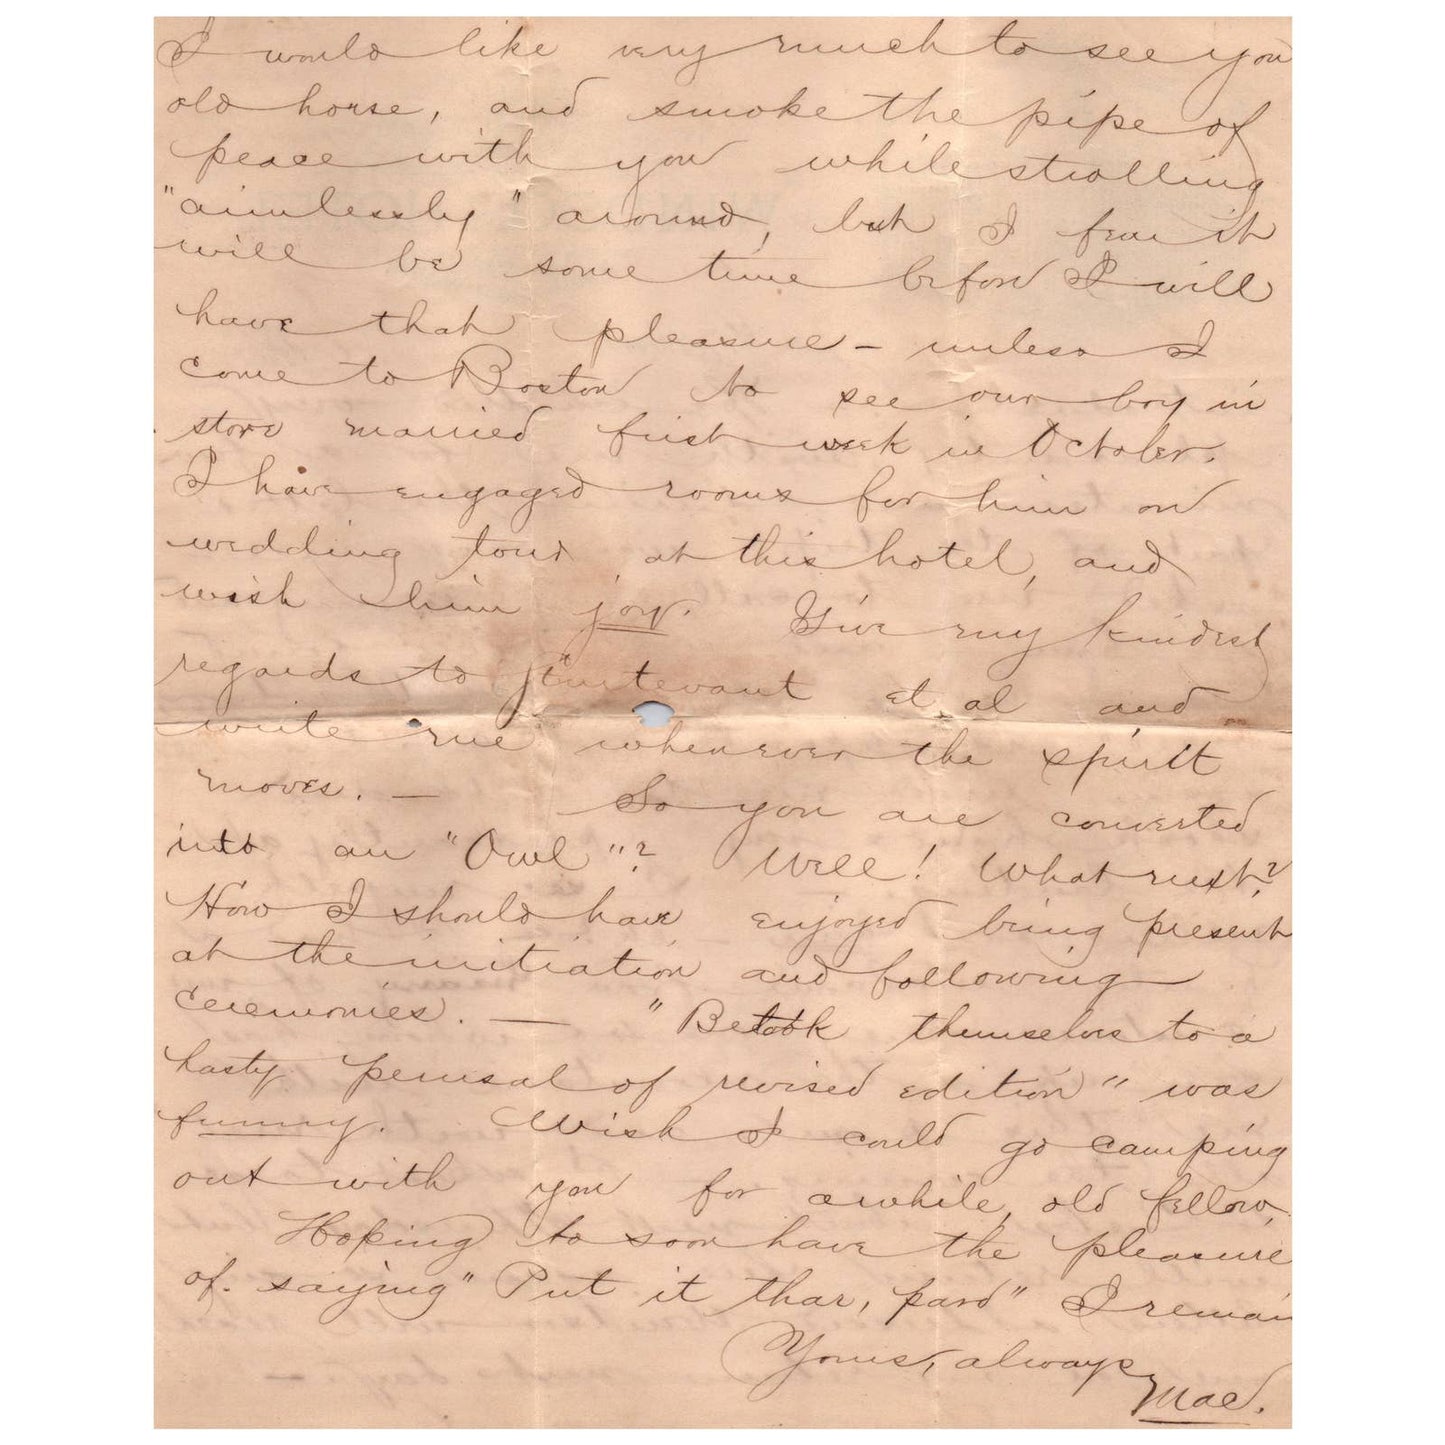 I would like very much to see you
old horse, and smoke the pipe of
peace with you while strolling
"aimlessly" around, but I fear it
will be some time before I will
have that pleasure – unless I
come to Boston to see our boy in
store married first week in October.
I have engaged rooms for him on
wedding tour at this hotel, and
wish him joy. Give my kindest
regards to Sturtevant et al and
write me whenever the spirit
moves. — So you are converted
into an "Owl"? Well! What next?
How I should have enjoyed being present
at the initiation and following
ceremonies. — "Betook themselves to a
hasty perusal of revised edition" was
funny. Wish I could go camping
out with you for awhile, old fellow,
Hoping to soon have the pleasure
of saying "Put it thar, pard" I remain
Yours, always
Mac.